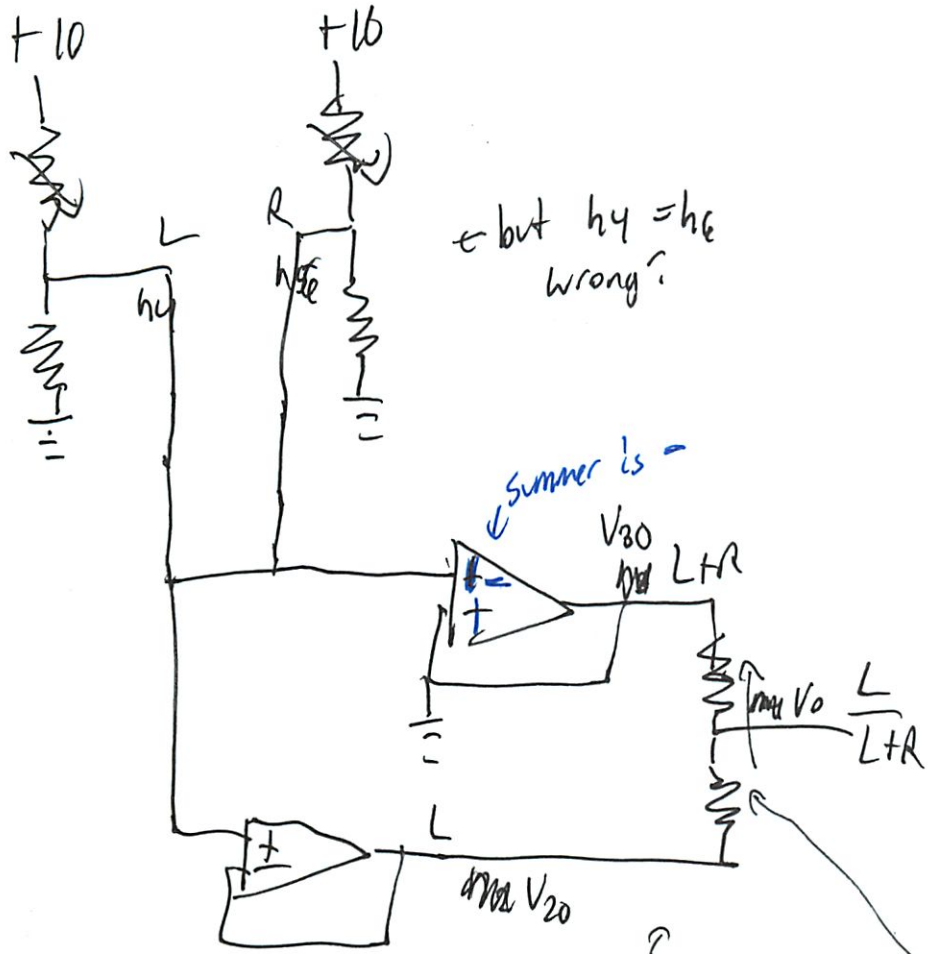 +10
+10
L
R
h4
← but h4 = h6
wrong?
summer is -
V30
L+R
-
+
V0
L
L+R
+
-
L
V20